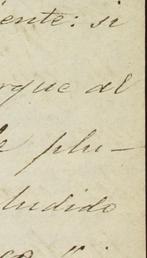 ente: si
rque al
e plu-
ludido